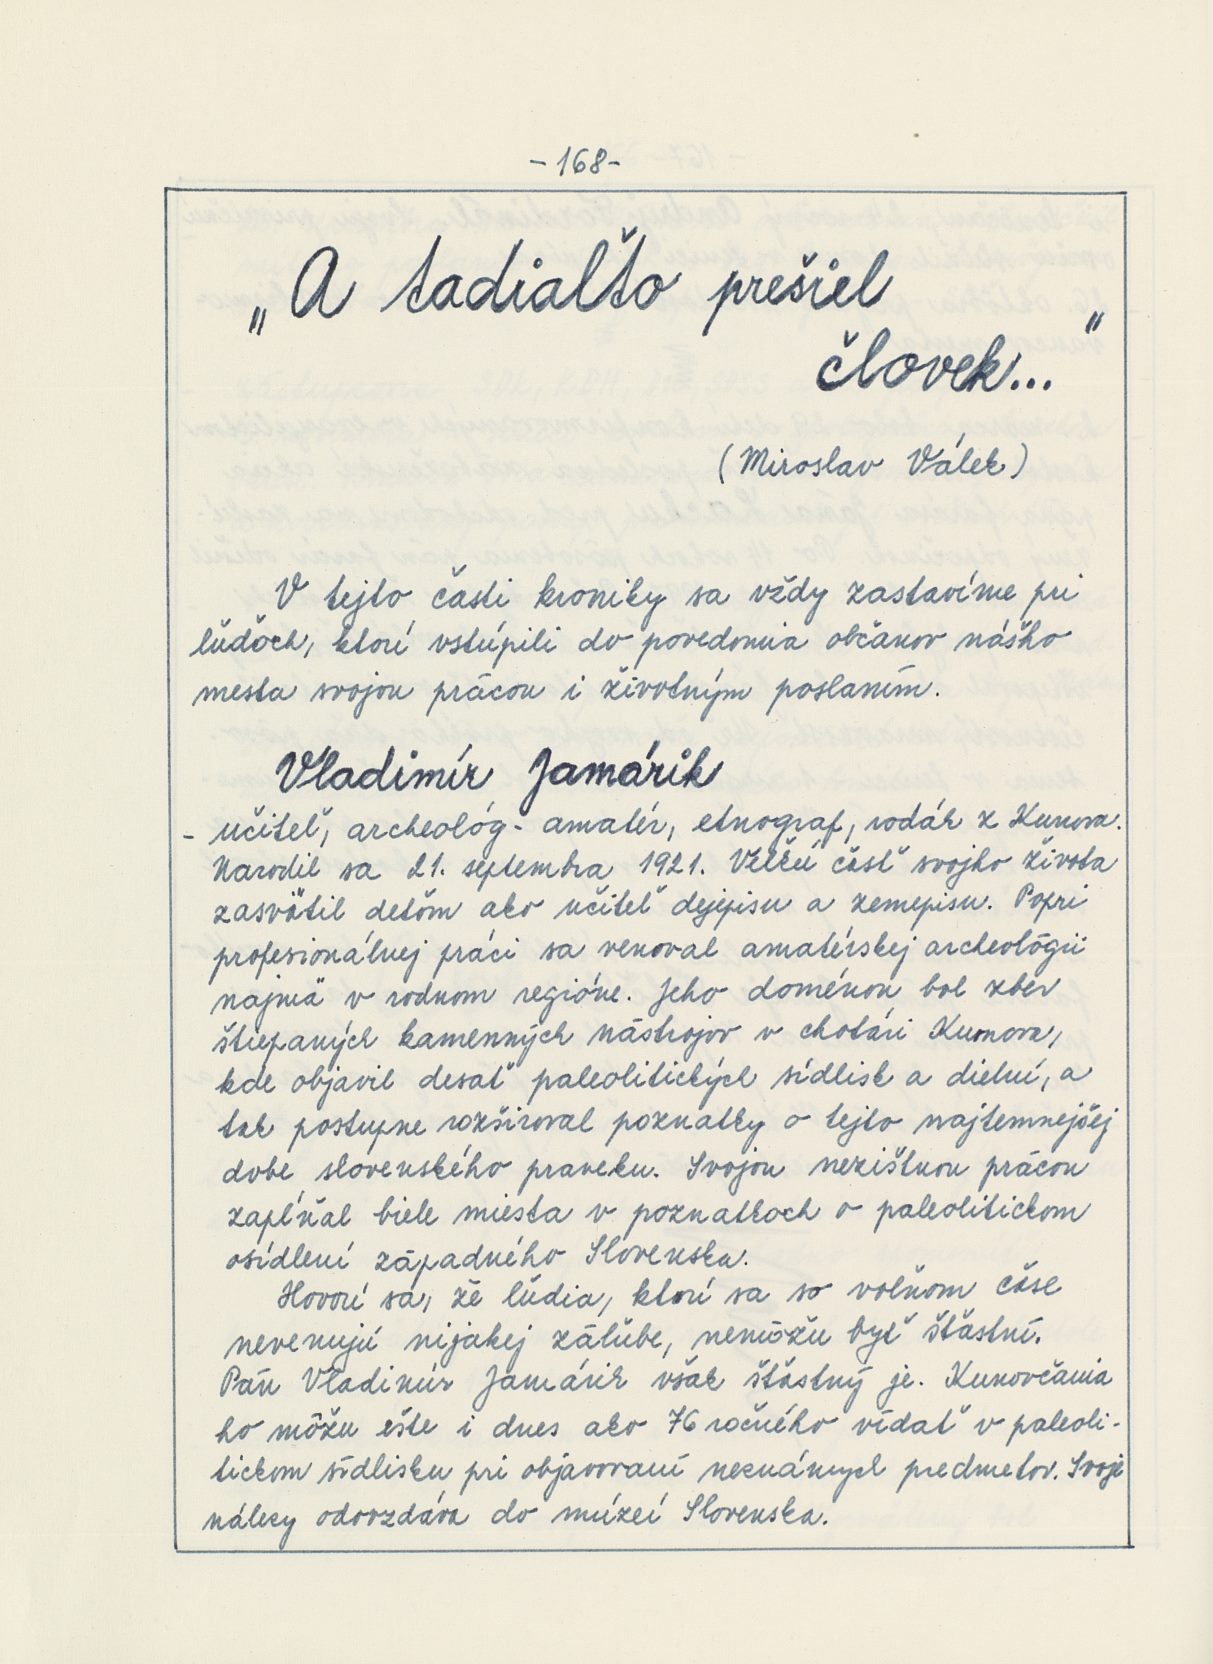 -168-
„A tadiaľto prešiel
človek..."
(Miroslav Válek)
V tejto časti kroniky sa vždy zastavíme pri
ľuďoch, ktorí vstúpili do povedomia občanov nášho
mesta svojou prácou i životným poslaním.
Vladimír Jamárik
- učiteľ, archeológ - amatér, etnograf, rodák z Kunova.
Narodil sa 21. septembra 1921. Veľkú časť svojho života
zasvätil deťom ako učiteľ dejepisu a zemepisu. Popri
profesionálnej práci sa venoval amatérskej archeológii
najmä v rodnom regióne. Jeho doménou bol zber
štiepaných kamenných nástrojov v chotári Kunova,
kde objavil desať paleolitických sídlisk a dielní, a
tak postupne rozširoval poznatky o tejto najtemnejšej
dobe slovenského praveku. Svojou nezištnou prácou
zapĺňal biele miesta v poznatkoch o paleolitickom
osídlení západného Slovenska.
Hovorí sa, že ľudia, ktorí sa vo voľnom čase
nevenujú nijakej záľube, nemôžu byť šťastní.
Pán Vladimír Jamárik však šťastný je. Kunovčania
ho môžu ešte i dnes ako 76 ročného vídať v paleoli-
tickom sídlisku pri objavovaní neznámych predmetov. Svoje
nálezy odovzdáva do múzeí Slovenska.